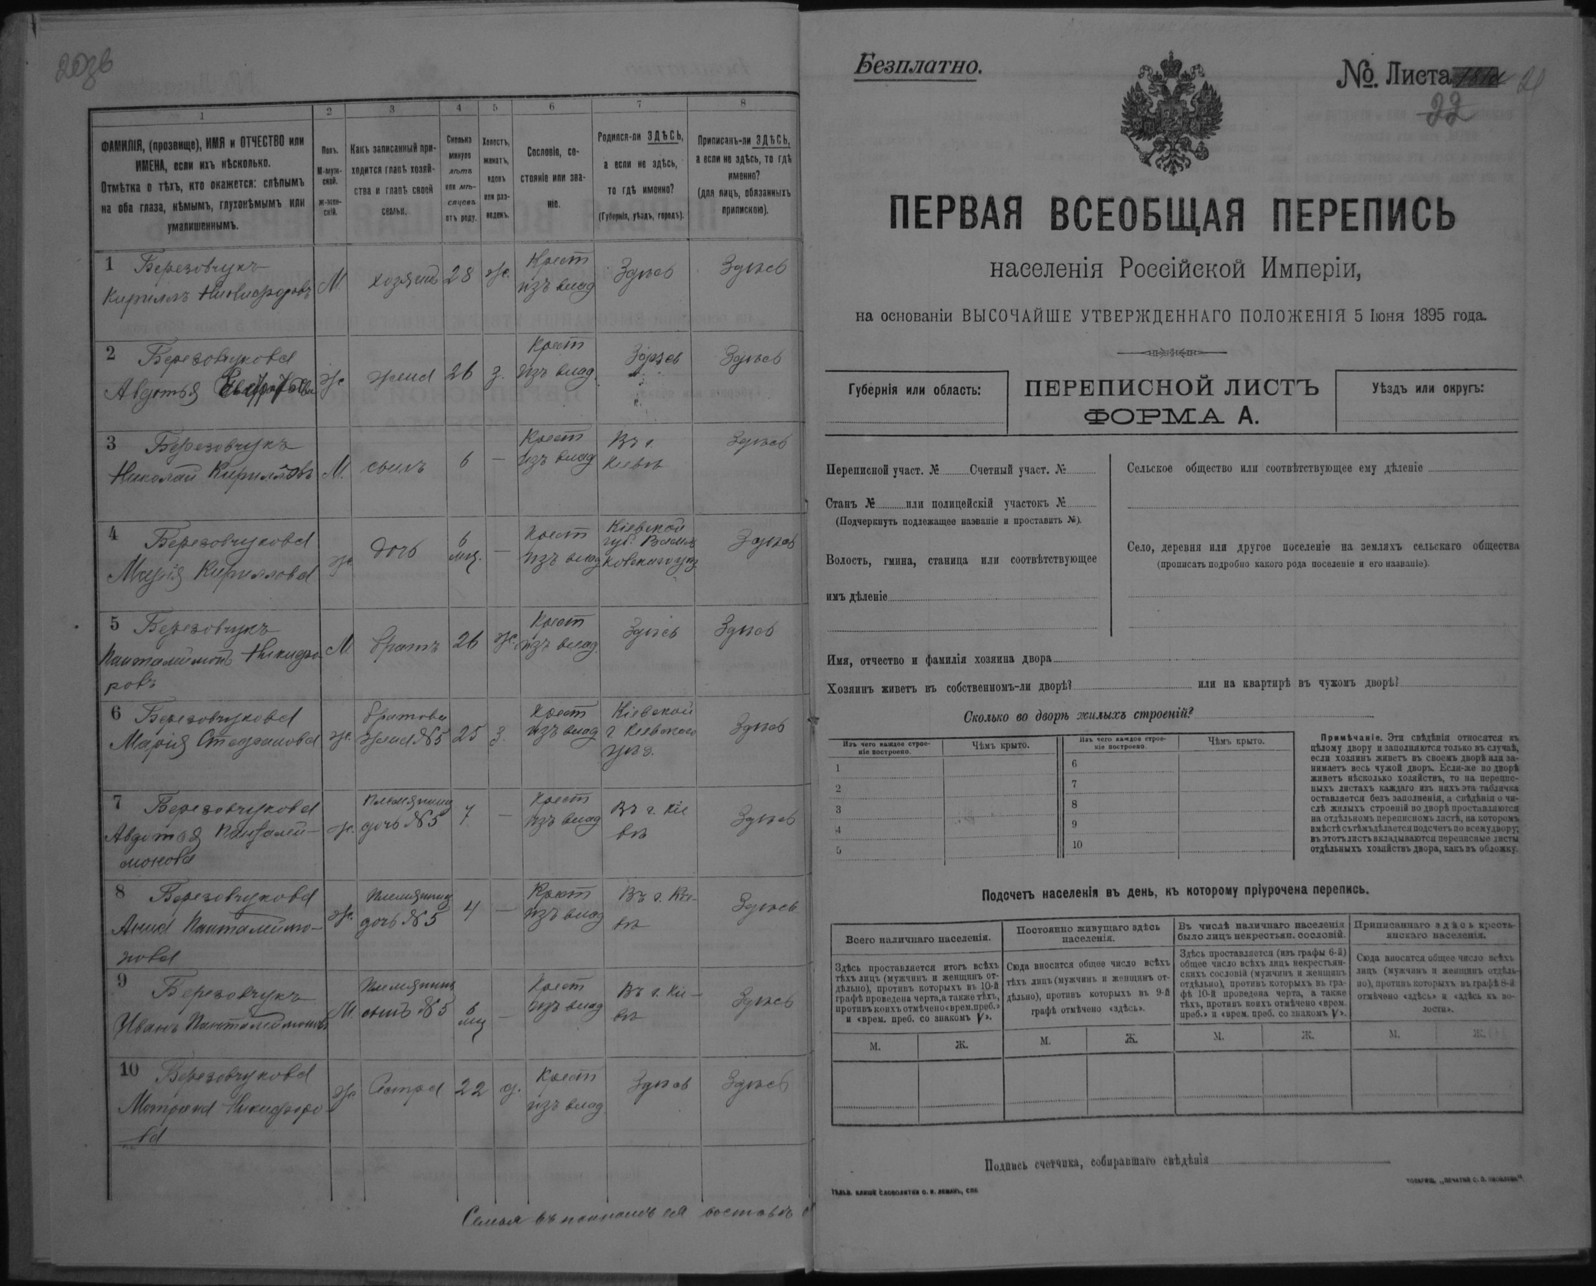 1
2
3
4
5
6
7
8
ФАМИЛІЯ, (прозвище), ИМЯ и ОТЧЕСТВО или
ИМЕНА, если ихъ нѣсколько.
Отмѣтка о тѣхъ, кто окажется: слѣпымъ
на оба глаза, нѣмымъ, глухонѣмымъ или
умалишеннымъ.
Полъ.
М-муж-
ской.
Ж-жен-
скій.
Какъ записанный при-
ходится главѣ хозяй-
ства и главѣ своей
семьи.
Сколько
минуло
лѣтъ
или мѣ-
сяцевъ
отъ роду.
Холостъ,
женатъ,
вдовъ
или раз-
веденъ.
Сословіе, со-
стояніе или зва-
ніе.
Родился-ли ЗДѢСЬ,
а если не здѣсь,
то гдѣ именно?
(Губернія, уѣздъ, городъ).
Приписанъ-ли ЗДѢСЬ,
а если не здѣсь, то гдѣ
именно?
(для лицъ, обязанныхъ
припискою).
1 Березовчукъ
Кириллъ
М
хозяинъ
28
ж.
Крест
изъ влад
Здѣсь
Здѣсь
2 Березовчукова
Авдотья
ж
жена
26
з.
Крест
изъ влад
Здѣсь
Здѣсь
3 Березовчукъ
Николай Кирилловъ
М.
сынъ
6
—
Крест
изъ влад
Въ г
Кіевѣ
Здѣсь
4 Березовчукова
Марія Кириллова
ж
дочь
6
мѣс.
—
Крест
изъ влад
Кіевской
губ. Василь
ковскаго уѣз
Здѣсь
5 Березовчукъ
Панталимонъ Никифо
ровъ
М
братъ
26
ж.
Крест
изъ влад
Здѣсь
Здѣсь
6 Березовчукова
Марія Степанова
ж.
братова
жена №5
25
з.
Крест
изъ влад
Кіевской
г Кіевскаго
уѣз.
Здѣсь
7 Березовчукова
Авдотья Панталей-
монова
ж.
племянница
дочь №5
7
—
Крест
изъ влад
Въ г. Кіе
вѣ
Здѣсь
8 Березовчукова
Анна Панталеймо-
нова
ж.
племянница
дочь №5
4
—
Крест
изъ влад
Въ г. Кіе-
вѣ
Здѣсь
9 Березовчукъ
Иванъ Панталеймоновъ
М
племянникъ
сынъ №5
6
мѣс
—
Крест
изъ влад
Въ г. Кіе-
вѣ
Здѣсь
10 Березовчукова
Матрона Никифоро
ва
ж
Сестра
22
д.
Крест
изъ влад
Здѣсь
Здѣсь
Безплатно.
№ Листа
22
21
ПЕРВАЯ ВСЕОБЩАЯ ПЕРЕПИСЬ
населенія Россійской Имперіи,
на основаніи ВЫСОЧАЙШЕ УТВЕРЖДЕННАГО ПОЛОЖЕНІЯ 5 Іюня 1895 года.
Губернія или область:
ПЕРЕПИСНОЙ ЛИСТЪ
ФОРМА А.
Уѣздъ или округъ:
Переписной участ. № Счетный участ. №
Станъ № или полицейскій участокъ №
(Подчеркнуть подлежащее названіе и проставить №).
Волость, гмина, станица или соотвѣтствующее
имъ дѣленіе
Сельское общество или соотвѣтствующее ему дѣленіе
Село, деревня или другое поселеніе на земляхъ сельскаго общества
(прописать подробно какого рода поселеніе и его названіе).
Имя, отчество и фамилія хозяина двора
Хозяинъ живетъ въ собственномъ-ли дворѣ? или на квартирѣ въ чужомъ дворѣ?
Сколько во дворѣ жилыхъ строеній?
Изъ чего каждое строе-
ніе построено.
Чѣмъ крыто.
Изъ чего каждое строе-
ніе построено.
Чѣмъ крыто.
1
2
3
4
5
6
7
8
9
10
Примѣчаніе. Эти свѣдѣнія относятся къ
цѣлому двору и заполняются только въ случаѣ,
если хозяинъ живетъ въ своемъ дворѣ или за-
нимаетъ весь чужой дворъ. Если-же во дворѣ
живетъ нѣсколько хозяйствъ, то на перепис-
ныхъ листахъ каждаго изъ нихъ эта табличка
оставляется безъ заполненія, а свѣдѣнія о чи-
слѣ жилыхъ строеній во дворѣ проставляются
на отдѣльномъ переписномъ листѣ, на которомъ
вмѣстѣ съ тѣмъ дѣлается подсчетъ по всему двору;
въ этотъ листъ вкладываются переписные листы
отдѣльныхъ хозяйствъ двора, какъ въ обложку.
Подсчетъ населенія въ день, къ которому пріурочена перепись.
Всего наличнаго населенія.
Здѣсь проставляется итогъ всѣхъ
тѣхъ лицъ (мужчинъ и женщинъ от-
дѣльно), противъ которыхъ въ 10-й
графѣ проведена черта, а также тѣхъ,
противъ коихъ отмѣчено «врем. преб.»
и «врем. преб. со знакомъ V».
Постоянно живущаго здѣсь
населенія.
Сюда вносится общее число всѣхъ
тѣхъ лицъ (мужчинъ и женщинъ от-
дѣльно), противъ которыхъ въ 9-й
графѣ отмѣчено «здѣсь».
Въ числѣ наличнаго населенія
было лицъ некрестьян. сословій.
Здѣсь проставляется (изъ графы 6-й)
общее число всѣхъ лицъ некрестьян-
скихъ сословій (мужчинъ и женщинъ
отдѣльно), противъ которыхъ въ гра-
фѣ 10-й проведена черта, а также
тѣхъ, противъ коихъ отмѣчено «врем.
преб.» и «врем. преб. со знакомъ V».
Приписаннаго здѣсь кресть-
янскаго населенія.
Сюда вносится общее число всѣхъ
лицъ (мужчинъ и женщинъ отдѣль-
но), противъ которыхъ въ графѣ 8-й
отмѣчено «здѣсь» и «здѣсь въ во-
лости».
М.
Ж.
М.
Ж.
М.
Ж.
М.
Ж.
Подпись счетчика, собиравшаго свѣдѣнія